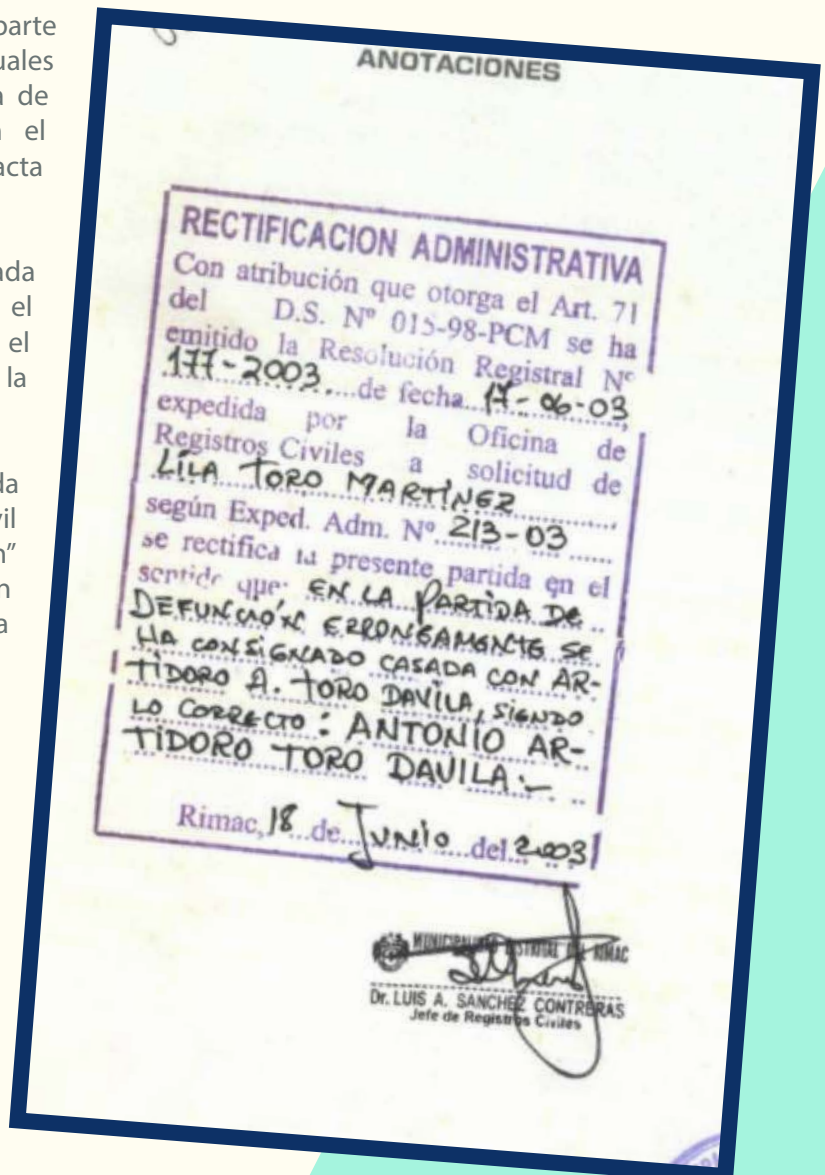 parte
uales
a de
el
acta
ada
el
el
la
da
vil
n"
n
a
ANOTACIONES
RECTIFICACION ADMINISTRATIVA
Con atribución que otorga el Art. 71
del D.S. Nº 015-98-PCM se ha
emitido la Resolución Registral Nº
177-2003....de fecha..17-06-03
expedida por la Oficina de
Registros Civiles a solicitud de
LILA TORO MARTÍNEZ
según Exped. Adm. Nº 213-03
se rectifica la presente partida en el
sentido que: EN LA PARTIDA DE
DEFUNCIÓN ERRONEAMENTE SE
HA CONSIGNADO CASADA CON AR-
TIDORO A. TORO DAVILA, SIENDO
LO CORRECTO: ANTONIO AR-
TIDORO TORO DAVILA.-
Rimac, 18 de JUNIO del 2003
MUNICIPALIDAD DISTRITAL DEL RIMAC
Dr. LUIS A. SANCHEZ CONTRERAS
Jefe de Registros Civiles